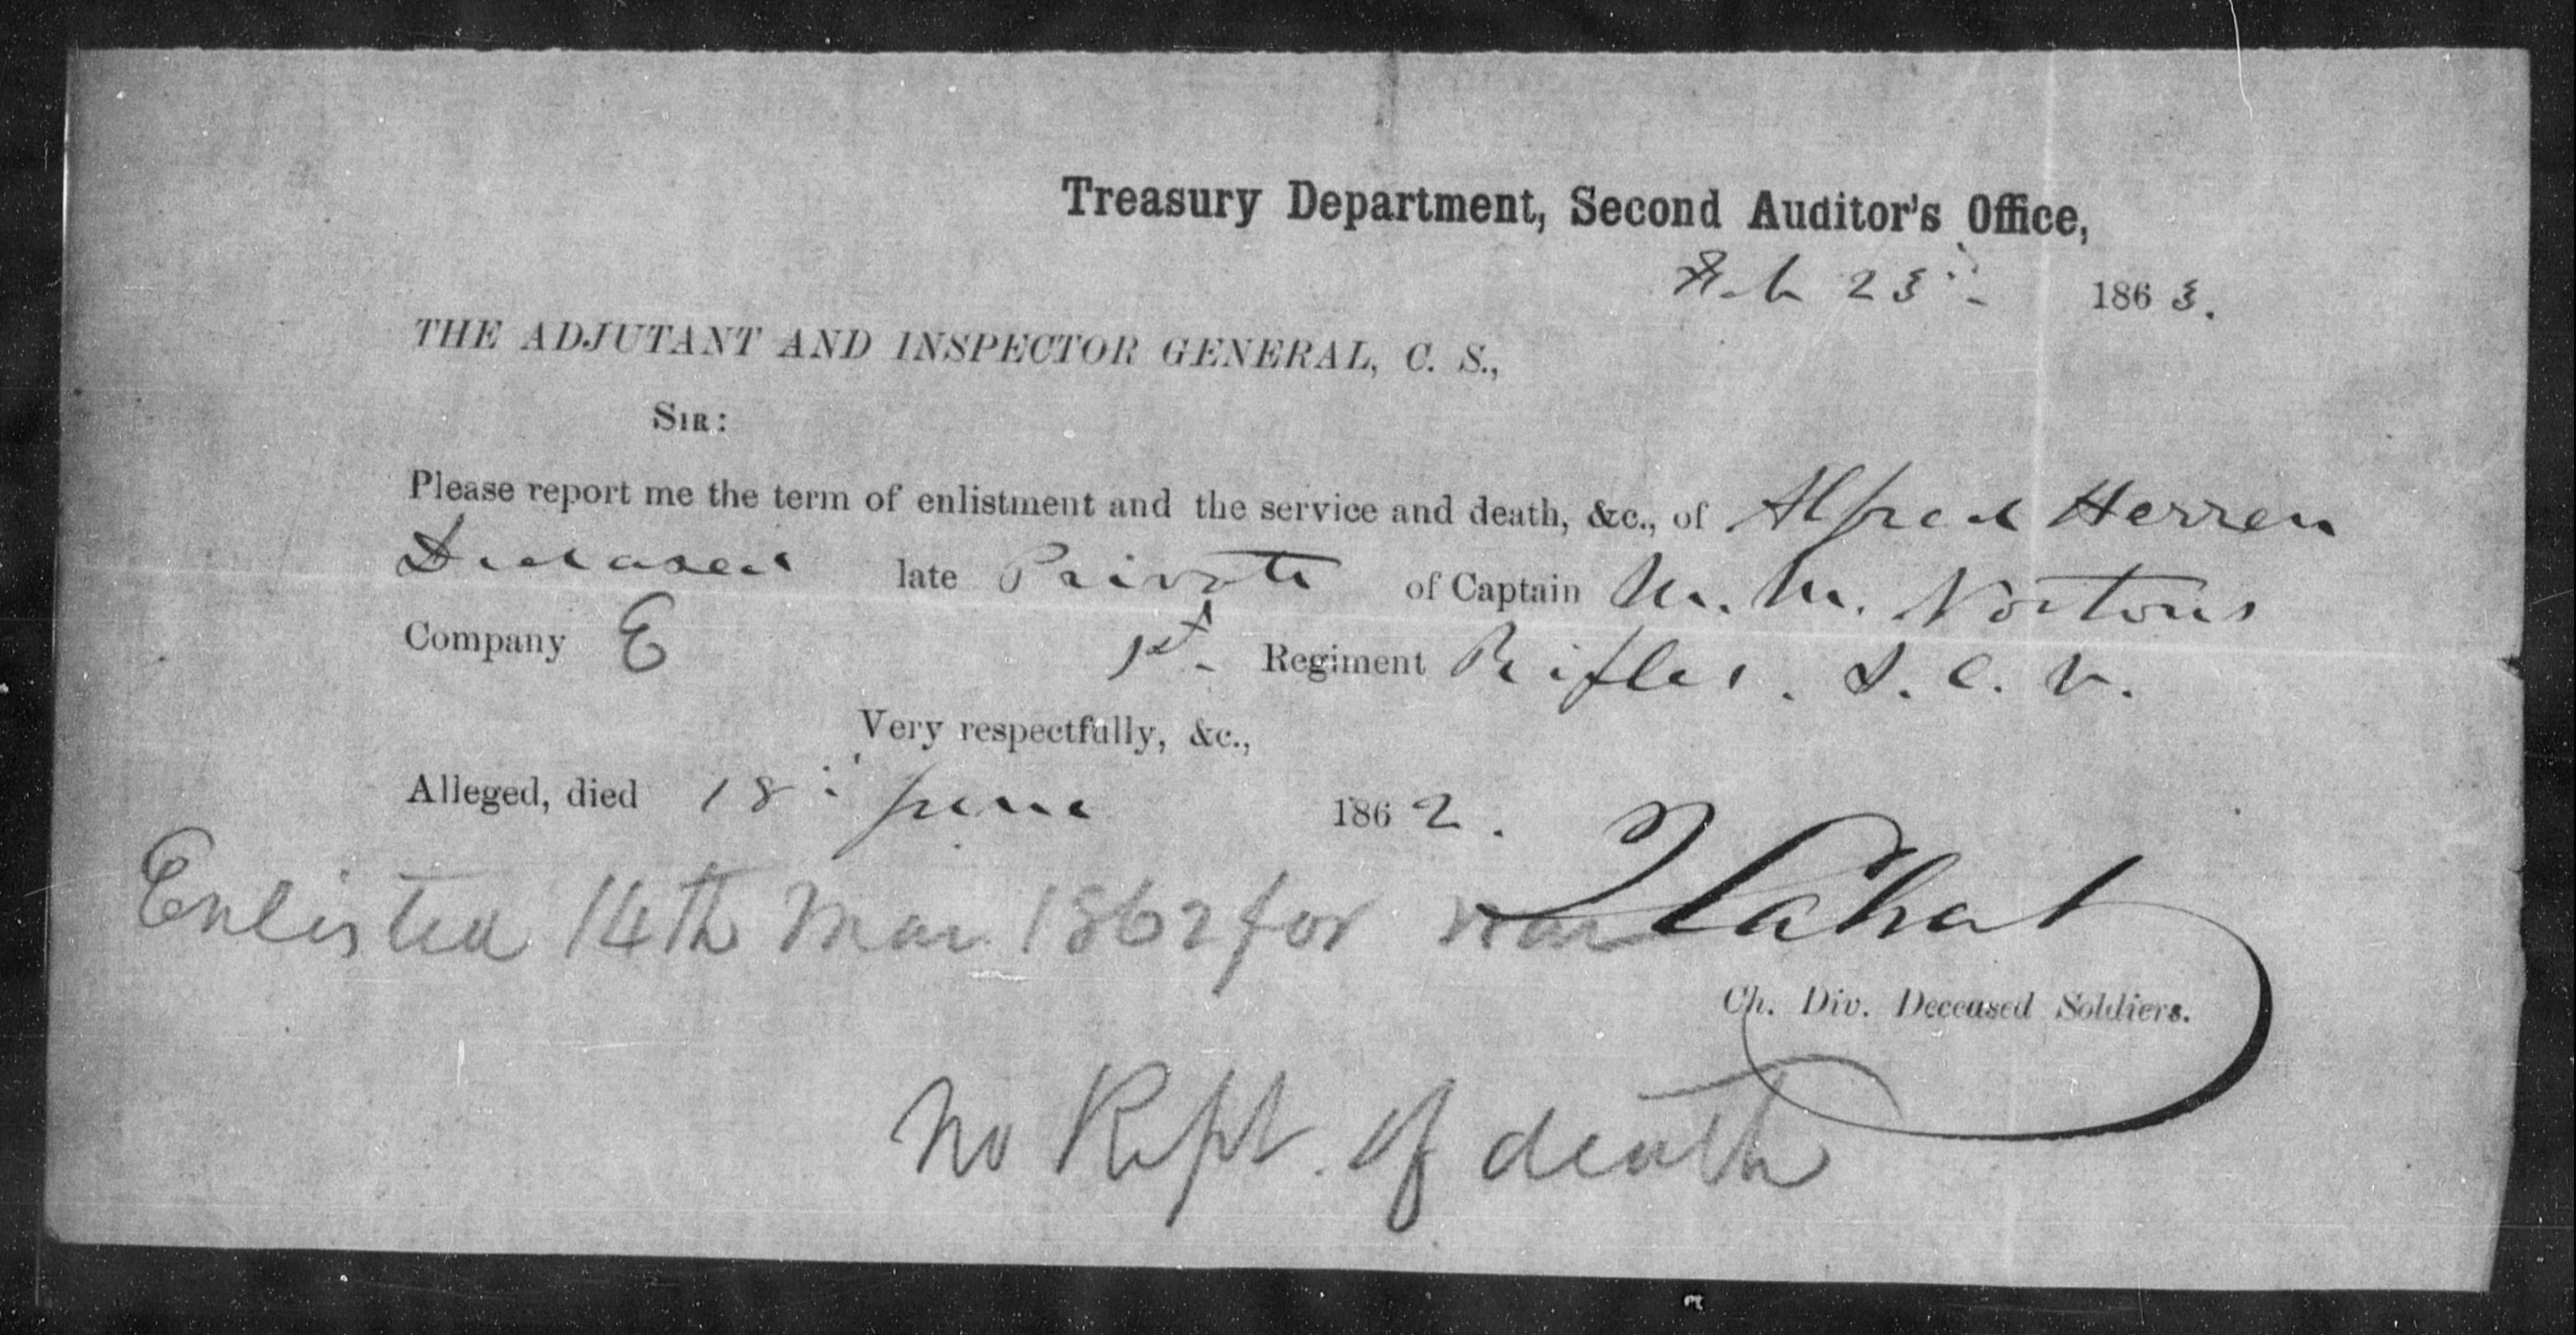 Treasury Department, Second Auditor's Office,
Feb 23d 1863.
THE ADJUTANT AND INSPECTOR GENERAL, C. S.,
SIR:
Please report me the term of enlistment and the service and death, &c., of Alfred Herren
Deceased late Private of Captain M. M. Nortons
Company E 1st Regiment Rifles. S. C. V.
Very respectfully, &c.,
Alleged, died 18 June 1862.
Enlisted 14th Mar 1862 for war
Ch. Div. Deceased Soldiers.
No Rept. of death